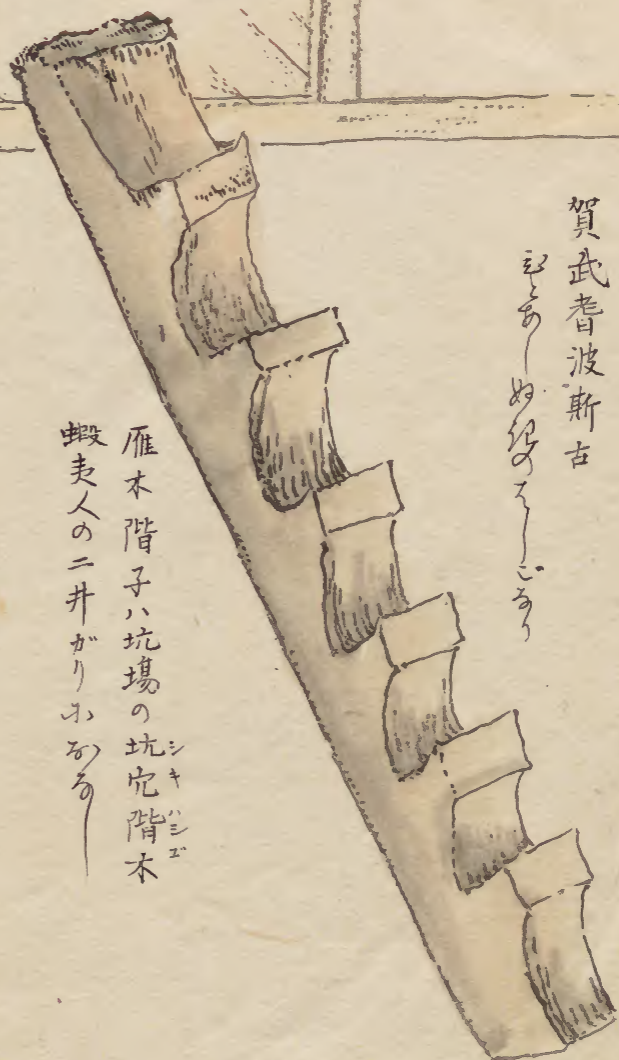 賀武耆波斯古
ひとあしぬ梠のはしごなり
雁木階子ハ坑場の坑穴階木
シキハシゴ
蝦夷人の二井ガリホおなし